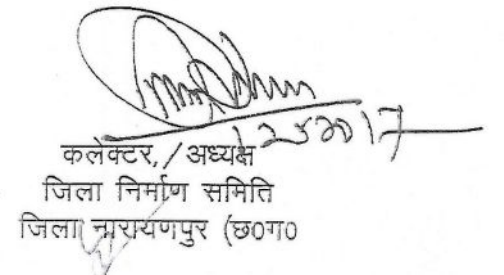 कलेक्टर, / अध्यक्ष
जिला निर्माण समिति
जिला नारायणपुर (छ०ग०